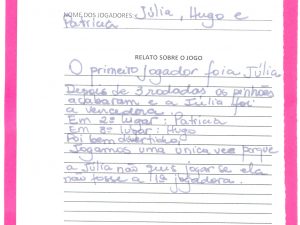 NOME DOS JOGADORES: Júlia, Hugo e
Patrícia
RELATO SOBRE O JOGO
O primeiro jogador foi a Júlia
Depois de 3 rodadas os pinhões
acabaram e a Júlia foi
a vencedora.
Em 2º lugar: Patrícia
Em 3º lugar: Hugo
Foi bem divertido
Jogamos uma unica vez porque
a Júlia não quis jogar se ela
não fosse a 1ª jogadora.